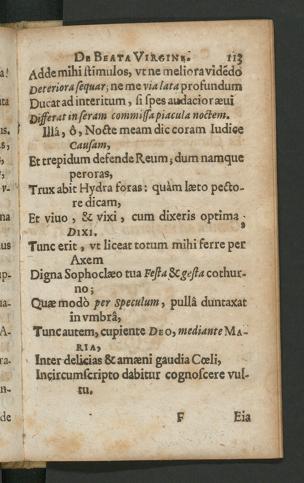 DE BEATA VIRGINE. 113
Adde mihi stimulos, vt ne meliora vidēdo
Deteriora sequar; ne me via lata profundum
Ducat ad interitum, si spes audacior æui
Differat in seram commissa piacula noctem.
Illâ, ô, Nocte meam dic coram Iudice
Causam,
Et trepidum defende Reum, dum namque
peroras,
Trux abit Hydra foras: quàm læto pecto-
re dicam,
Et viuo, & vixi, cum dixeris optima,
DIXI.
Tunc erit, vt liceat totum mihi ferre per
Axem
Digna Sophoclæo tua Festa & gesta cothur-
no;
Quæ modò per speculum, pullâ duntaxat
in vmbrâ,
Tunc autem, cupiente DEO, mediante MA-
RIA,
Inter delicias & amæni gaudia Cœli,
Incircumscripto dabitur cognoscere vul-
tu.
F Eia